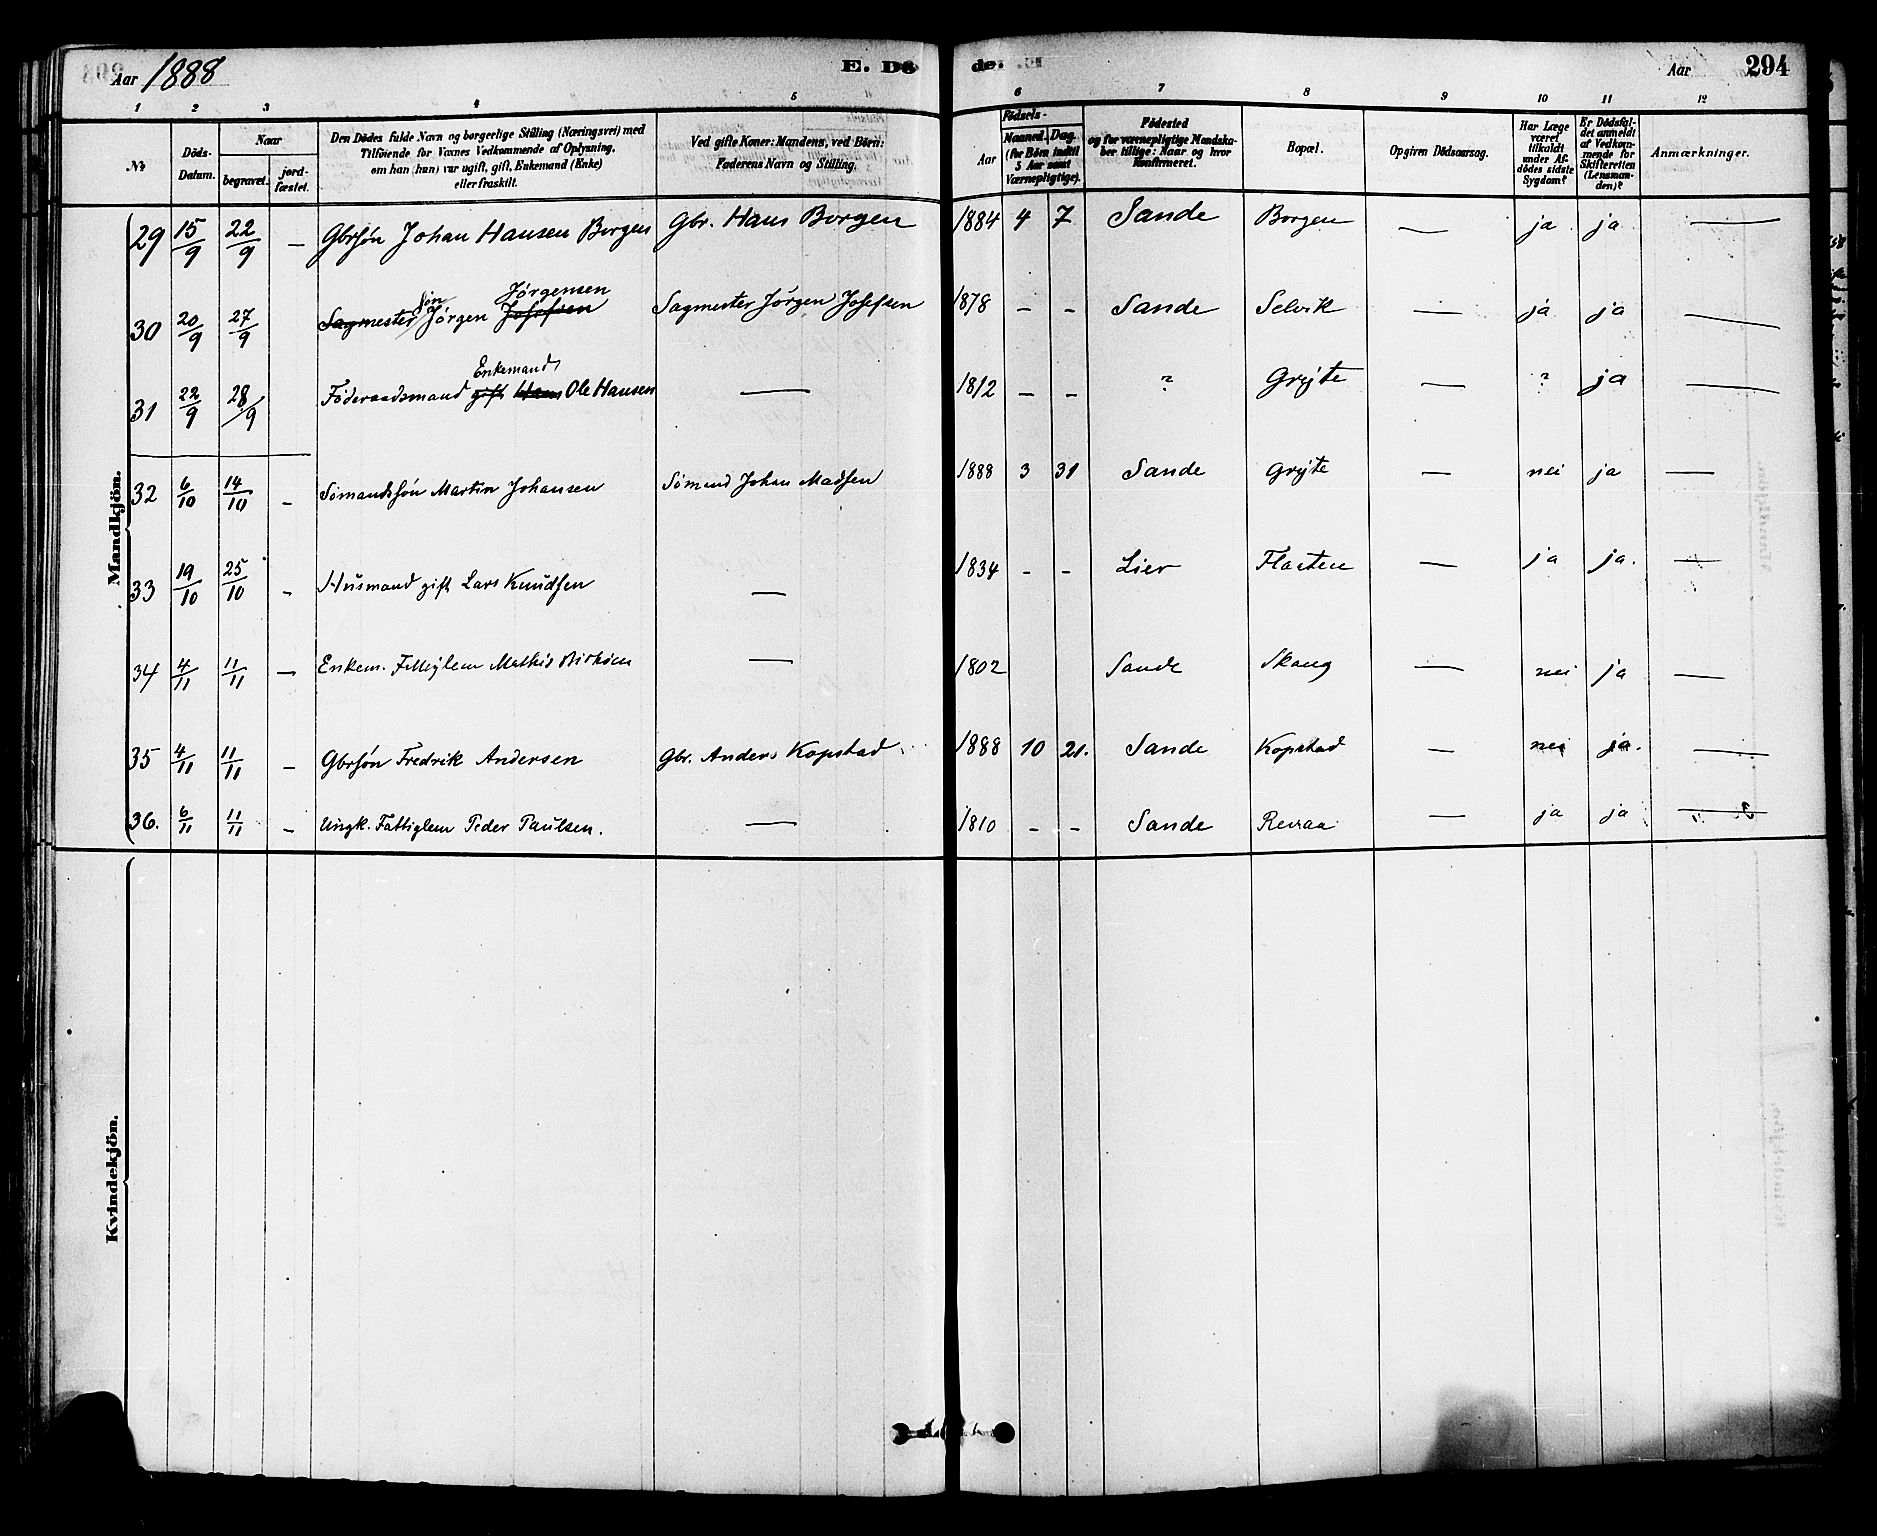 Aar 1888 E. Dö de. Aar 294
1 2 3 4 5 6 7 8 9 10 11 12
№ Döds-Datum. Naar begravet. jord-fæstet. Den Dödes fulde Navn og borgerlige Stilling (Næringsvei) med Tilföiende for Voxnes Vedkommende af Oplysning, om han (hun) var ugift, gift, Enkemand (Enke) eller fraskilt. Ved gifte Koner: Mandens, ved Börn: Faderens Navn og Stilling. Födsels- Aar Maaned. Dag. (for Börn indtil 5 Aar samt Værnepligtige). Födested og for værnepligtige Mandskaber tillige: Naar og hvor Konfirmeret. Bopæl. Opgiven Dödsaarsag. Har Læge været tilkaldt under Afdödes sidste Sygdom? Er Dödsfaldet anmeldt af Vedkommende for Skifteretten (Lensmanden)? Anmærkninger.
Mandkjön.
29 15/9 22/9 — Gbrsøn Johan Hansen Borgen Gbr. Hans Borgen 1884 4 7 Sande Borgen — ja ja —
søn Jørgensen
30 20/9 27/9 Sagmester Jørgen Josefsen Sagmester Jørgen Josefsen 1878 - - Sande Selvik — ja ja —
Enkemand
31 22/9 28/9 Föderaadsmand gift Hans Ole Hansen — 1812 - - ? Grÿte — ? ja —
32 6/10 14/10 - Sömandssøn Martin Johansen Sømand Johan Madsen 1888 3 31 Sande Grÿte — nei ja —
33 19/10 25/10 - Husmand gift Lars Knudsen — 1834 - - Lier Flaaten — ja ja. —
34 4/11 11/11 — Enkem. Fattiglem Mathis — 1802 Sande Skaug — nei ja —
35 4/11 11/11 - Gbrsøn Fredrik Andersen Gbr. Anders Kopstad 1888 10 21. Sande Kopstad — nei ja. —
36. 6/11 11/11 - Ungk. Fattiglem Peder Paulsen. — 1810 - - Sande Revaa — ja ja —
Kvindekjön.